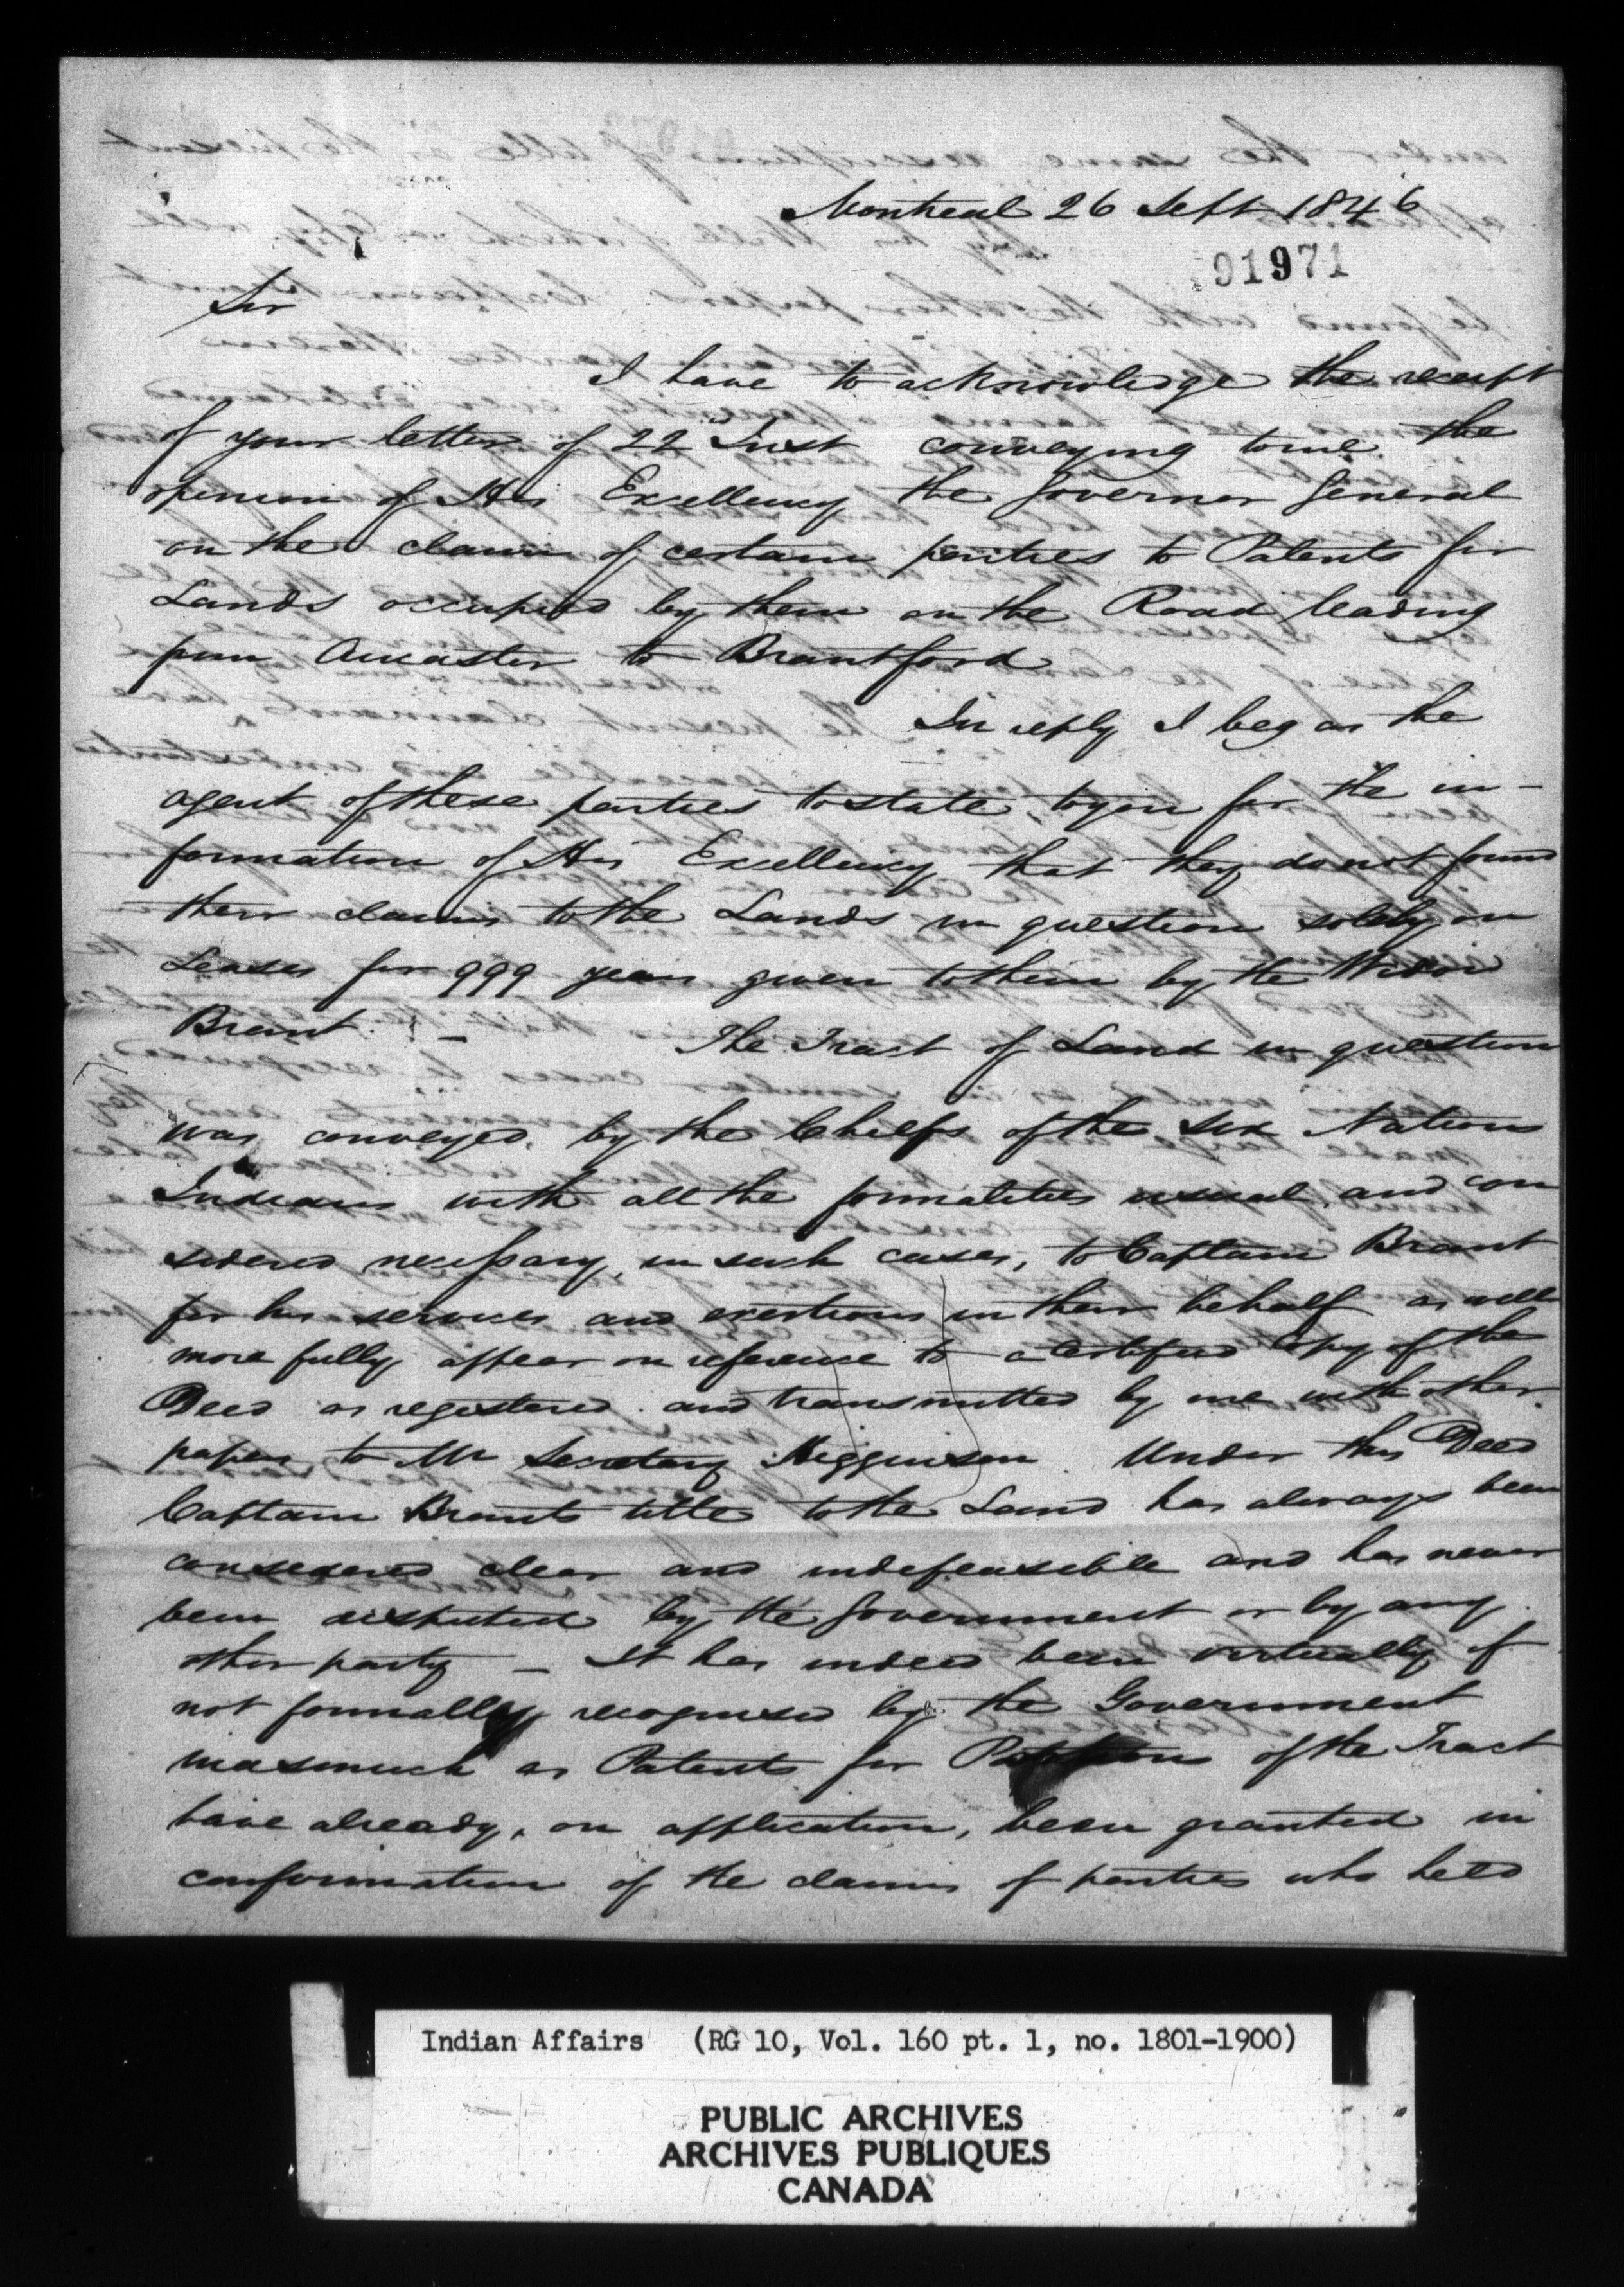 Montreal 26 Sept 1846
91971
Sir
I have to acknowledge the receipt
of your letter of 22nd Inst conveying to me the
opinion of His Excellency the Governor General
on the claim of certain parties to Patents for
Lands occupied by them on the Road leading
from Ancaster to Brantford
In reply I beg as the
agent of these parties to state, to you for the in-
formation of His Excellency that they do not found
their claims to the Lands in question solely on
Leases for 999 years given to them by the Widow
Brant. - The Tract of Land in question
was conveyed by the Chiefs of the Six Nations
Indians with all the formalities usual and con
sidered necessary, in such cases, to Captain Brant
for his services and exertions in their behalf as will
more fully appear on reference to a Certified Copy of the
Deed as registered and transmitted by me with other
papers to Mr Secretary Higginson. Under this Deed
Captain Brants title to the Land has always been
considered clear and indefeasible and has never
been disputed by the Government or by any
other party - It has indeed been virtually if
not formally recognised by the Government
inasmuch as Patents for of the Tract
have already, on application, been granted in
confirmation of the claims of parties who held
Indian Affairs (RG 10, Vol. 160 pt. 1, no. 1801-1900)
PUBLIC ARCHIVES
ARCHIVES PUBLIQUES
CANADA